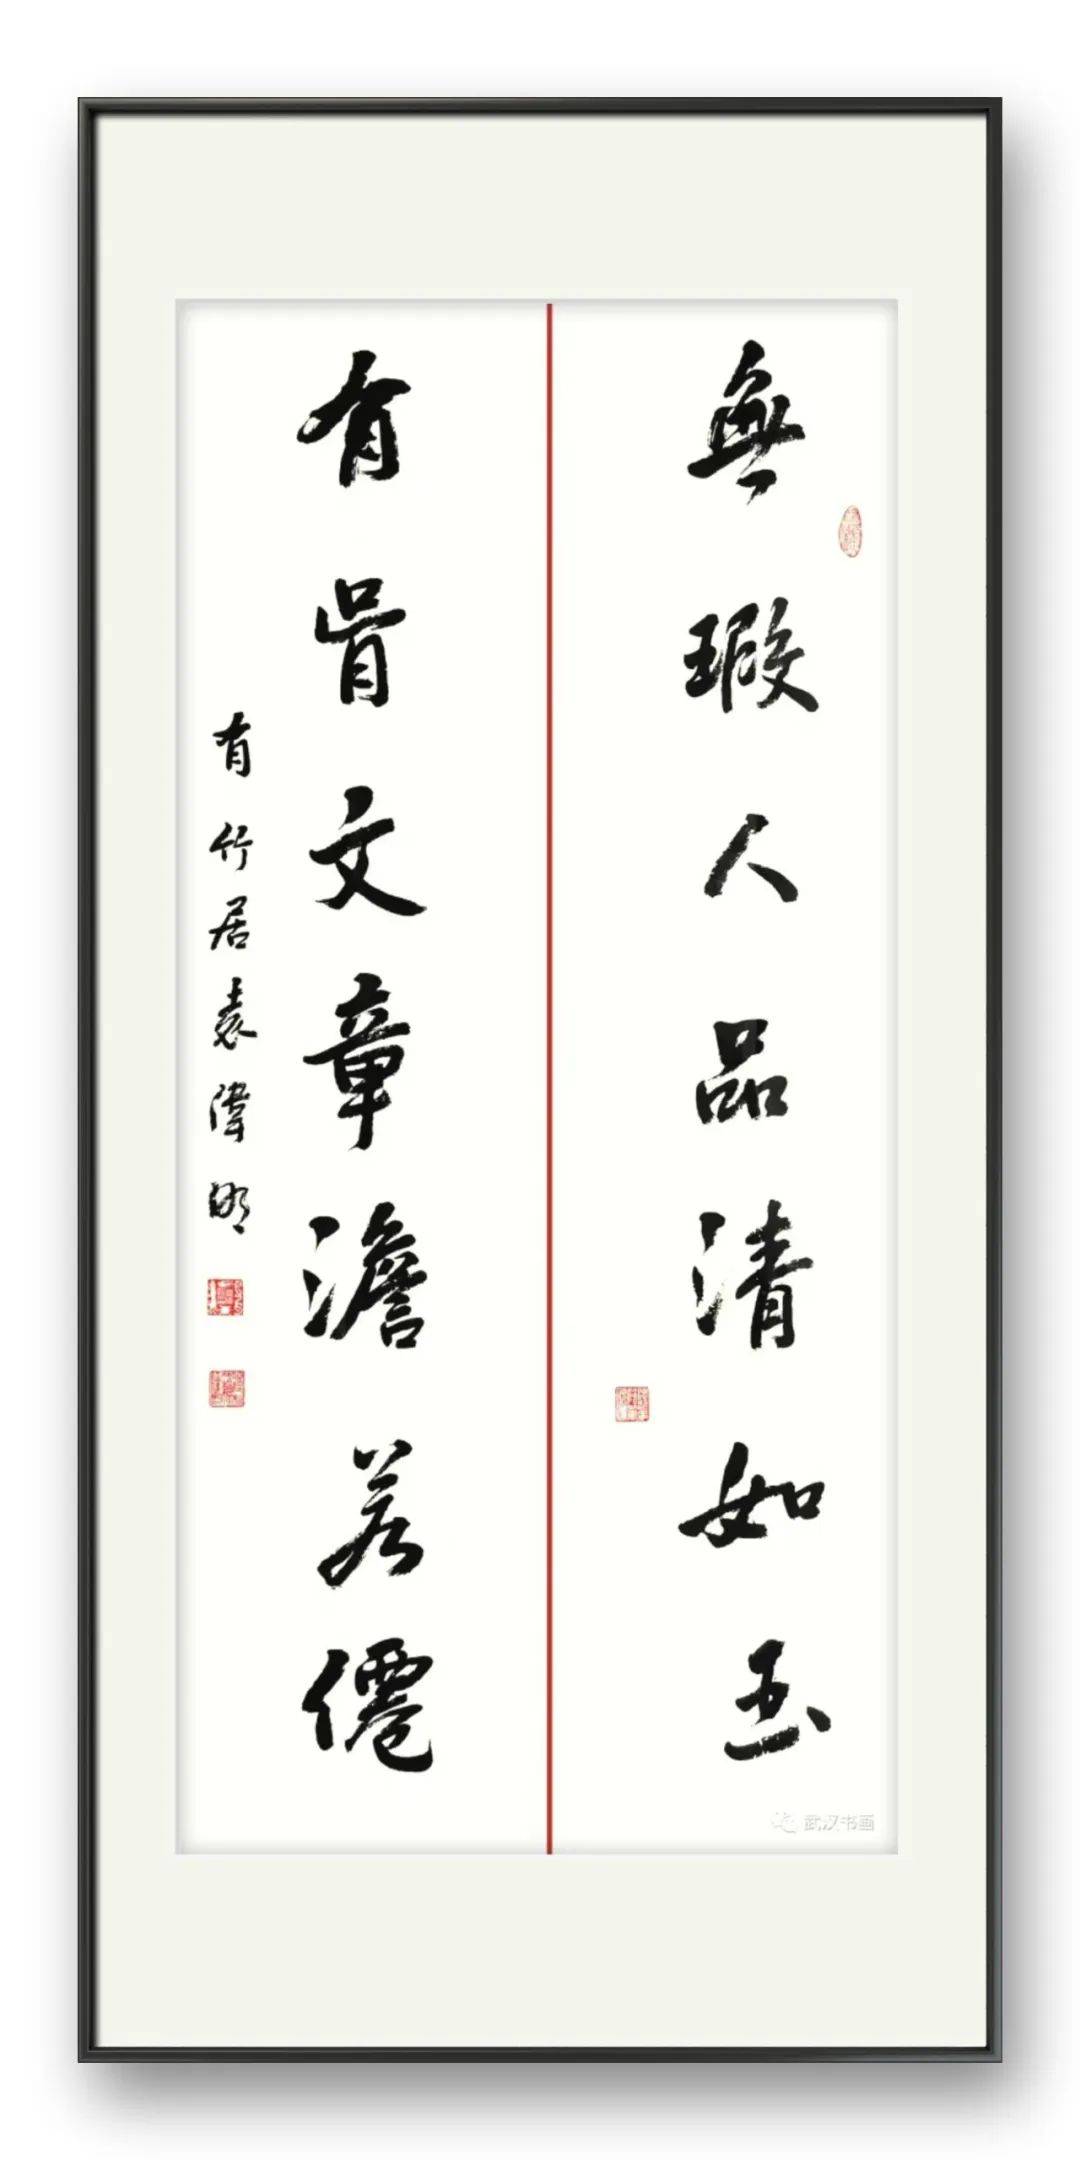 無瑕人品清如玉
有骨文章澹若僊
有竹居袁偉明
武汉书画